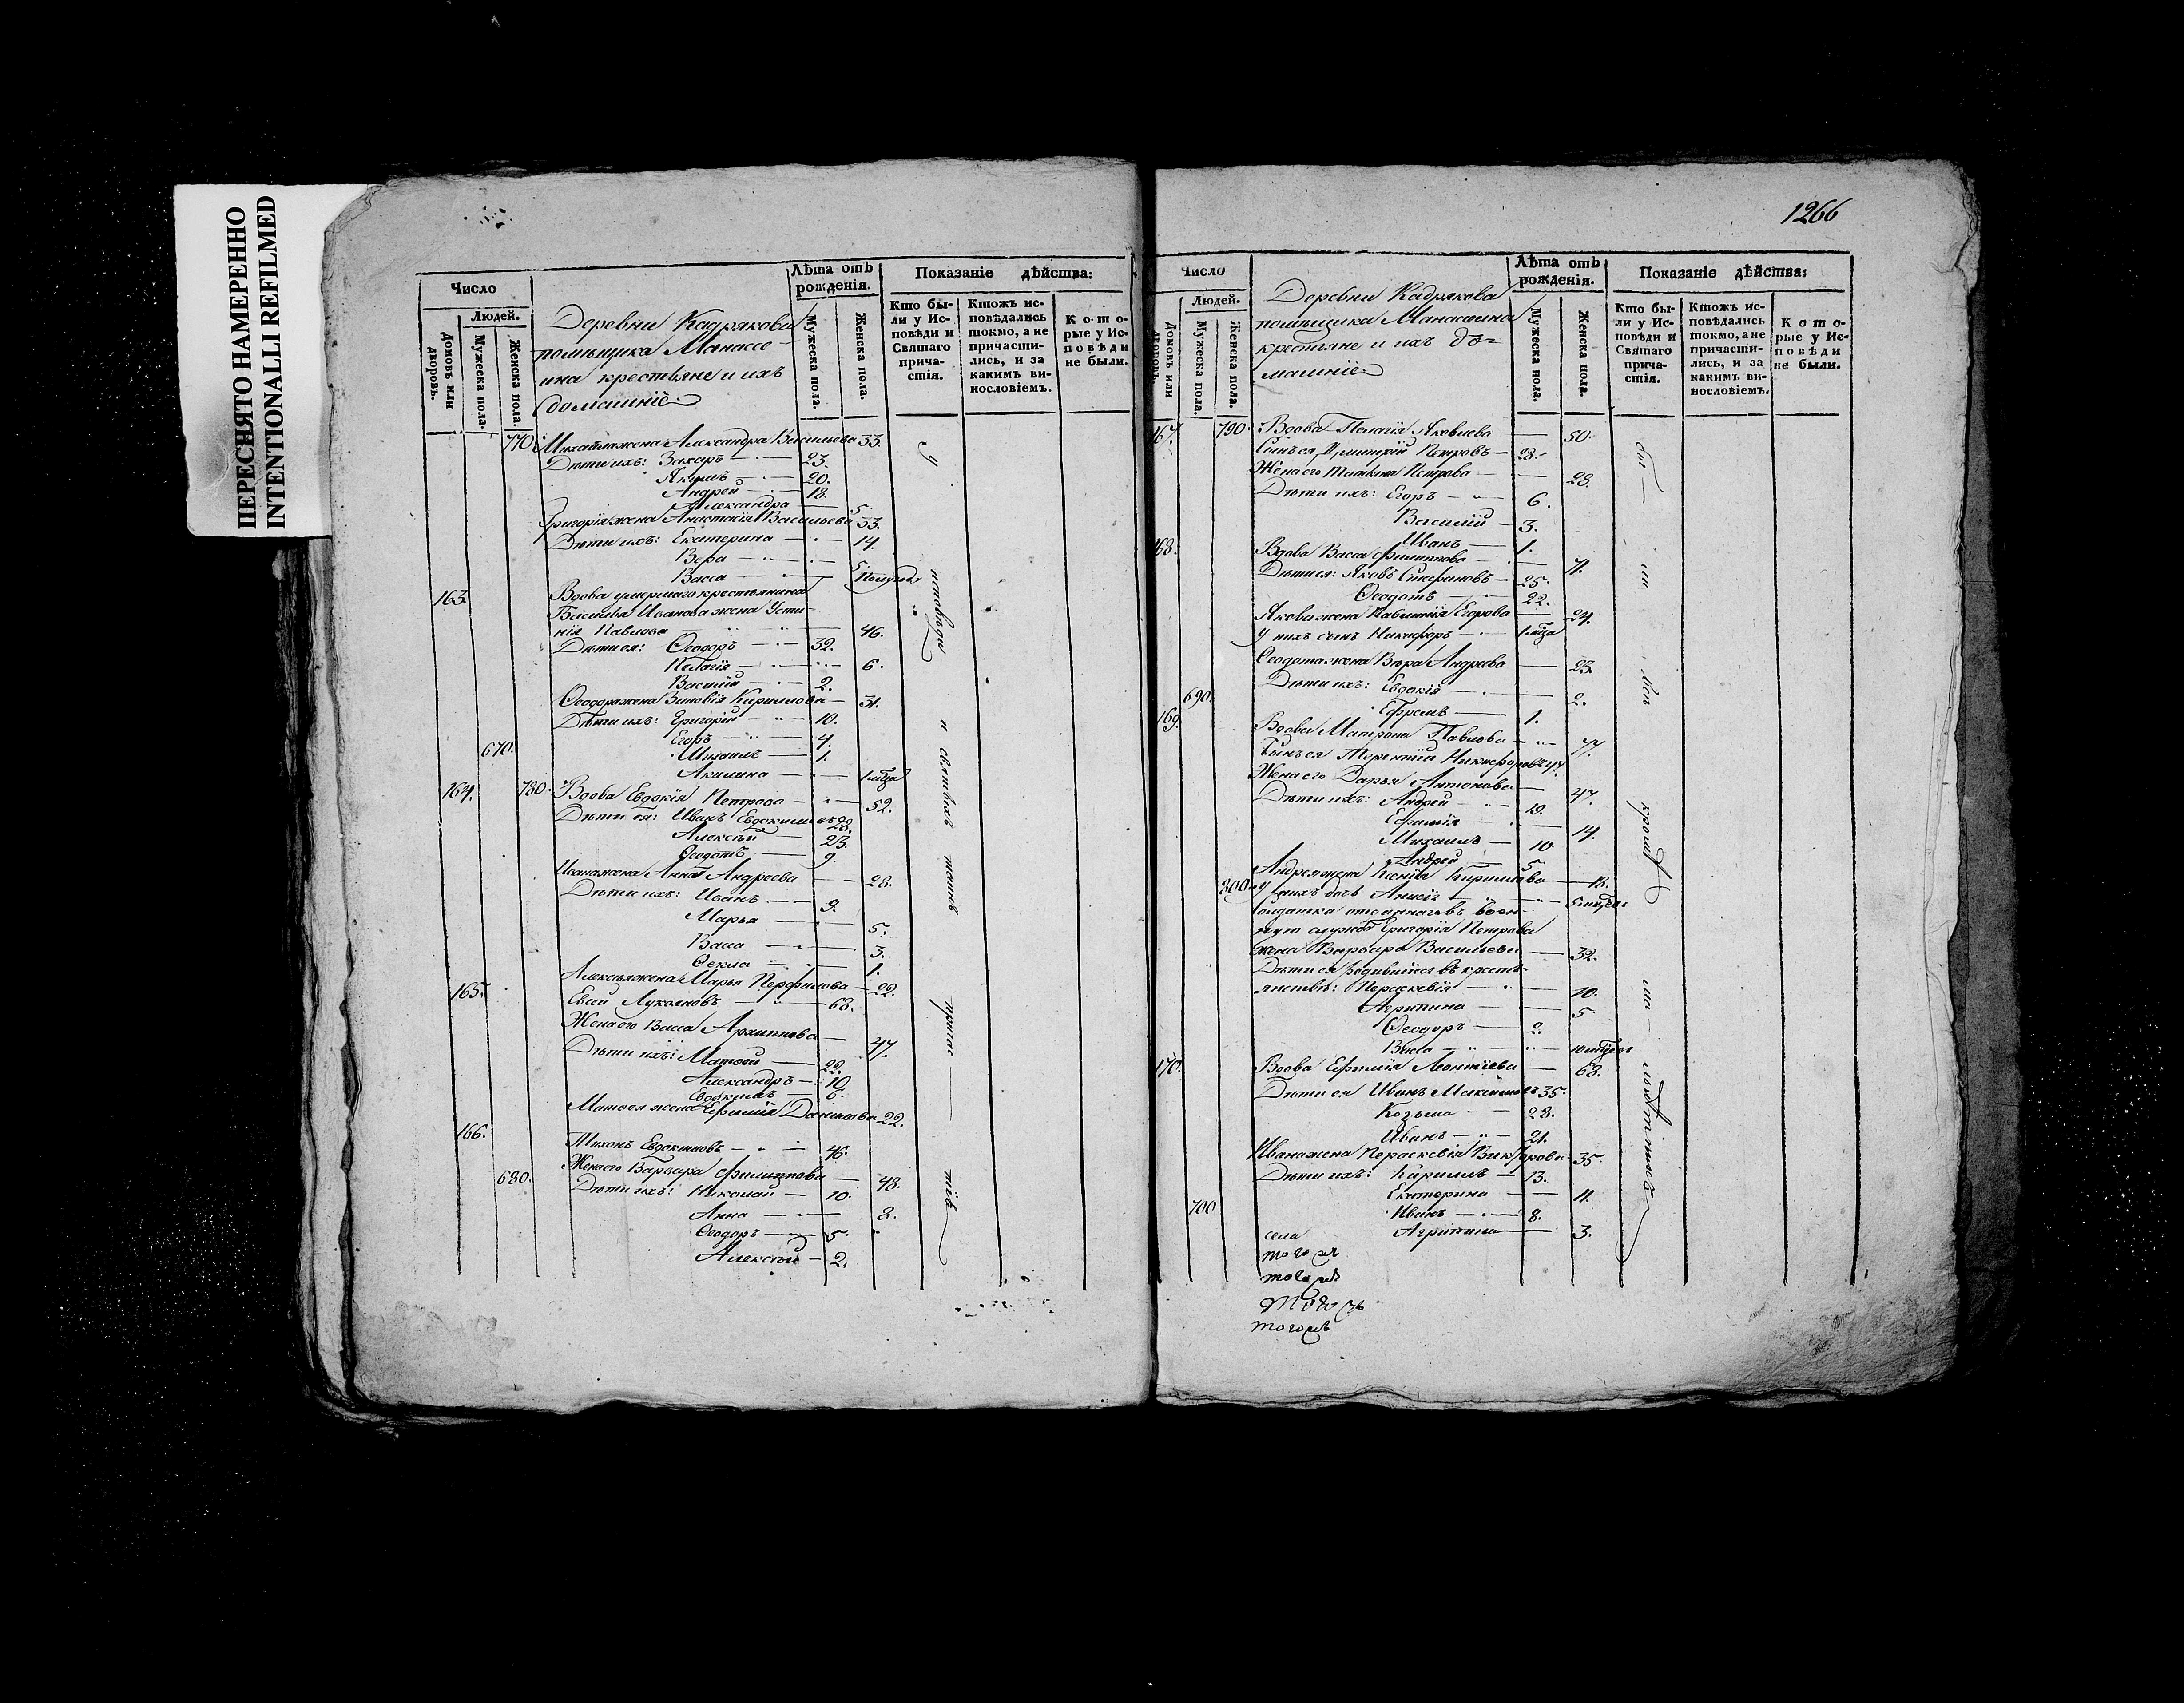 ПЕРЕСНЯТО НАМЕРЕННО
INTENTIONALLI REFILMED
Число
Людей.
Домовъ или дворовъ.
Мужеска пола.
Женска пола.
Деревни Кадрякова
помѣщика Манассе-
ина крестьяне и ихъ
домашніе.
Лѣта отъ рожденія.
Мужеска пола.
Женска пола.
Показаніе дѣйства:
Кто бы-
ли у Ис-
повѣди и
Святаго
прича-
стія.
Ктожъ ис-
повѣдались
токмо, а не
причасти-
лись, и за
какимъ ви-
нословіемъ.
Кото-
рые у Ис-
повѣди
не были.
770. Михайла жена Александра Васильева 33.
Дѣти ихъ: Захаръ 23.
Якимъ 20.
Андрей 18.
Александра 5.
Григорія жена Анастасія Васильева 33.
Дѣти ихъ: Екатерина 14.
Вера 5.
Васса полугод.
163. Вдова умершаго крестьянина
Василья Иванова жена Усти-
нія Павлова 46.
Дѣти ея: Ѳеодоръ 32.
Пелагія 6.
Василій 2.
Ѳеодора жена Зиновія Кириллова 31.
Дѣти ихъ: Григорій 10.
Егоръ 4.
670. Михаилъ 1.
Акилина 1 мѣца
164. 780. Вдова Евдокія Петрова 52.
Дѣти ея: Иванъ Евдокимовъ 28.
Алексѣй 23.
Ѳеодотъ 9.
Ивана жена Анна Андреева 28.
Дѣти ихъ: Иванъ 9.
Марья 5.
Васса 3.
Ѳекла 1.
Алексѣя жена Марья Перфилова 22.
165. Евсей Лукояновъ 68.
Жена его Васса Архиппова 47.
Дѣти ихъ: Матѳей 22.
Александръ 10.
Евдокимъ 6.
Матѳея жена Ефимія Данилова 22.
166. Тихонъ Евдокимовъ 46.
Жена его Варвара Филиппова 48.
680. Дѣти ихъ: Николай 10.
Анна 8.
Ѳеодоръ 5.
Алексѣй 2.
у исповѣди и святыхъ таинъ
1266
Число
Людей.
Домовъ или дворовъ.
Мужеска пола.
Женска пола.
Деревни Кадрякова
помѣщика Манасеина
крестьяне и ихъ до=
машніе
Лѣта отъ рожденія.
Мужеска пола.
Женска пола.
Показаніе дѣйства:
Кто бы-
ли у Ис-
повѣди и
Святаго
прича-
стія.
Ктожъ ис-
повѣдались
токмо, а не
причасти-
лись, и за
какимъ ви-
нословіемъ.
Кото-
рые у Ис-
повѣди
не были.
167. 790. Вдова Пелагія Яковлева 50.
Сынъ ея Димитрій Петровъ 28.
Жена его Татьяна Петрова 28.
Дѣти ихъ: Егоръ 6.
Василій 3.
Иванъ 1.
168. Вдова Васса Филиппова 71.
Дѣти ея: Яковъ Стефановъ 25.
Ѳеодотъ 22.
Якова жена Егорова 24.
У нихъ сынъ Никифоръ 1 мѣца
Ѳеодота жена Вѣра Андреева 23.
Дѣти ихъ: Евдокія 2.
690. Ефремъ 1.
169. Вдова Матрона Павлова 77.
Сынъ ея Терентій Никифоровъ 47.
Жена его Дарья Антонова 47.
Дѣти ихъ: Андрей 19.
Ефимія 14.
Михаилъ 10.
Андрей 5.
Андрея жена Ксенія Кириллова 18.
800. У нихъ дочь Анисія 5 мѣцов
Солдатка отданнаго въ воен-
ную службу Григорія Петрова
жена Варвара Васильева 32.
Дѣти ея родившіеся въ кресть-
янствѣ: Параскевія 10.
Агрипина 5.
Ѳеодоръ 2.
Васса 10 мѣцов
170. Вдова Ефимія Леонтіева 68.
Дѣти ея Иванъ Максимовъ 35.
Козьма 28.
Иванъ 21.
Ивана жена Параскевія 35.
Дѣти ихъ: Кириллъ 13.
Екатерина 11.
700 Иванъ 8.
Агрипина 3.
бы ли кромѣ
села
тогожъ
тогожъ
тогожъ
тогожъ